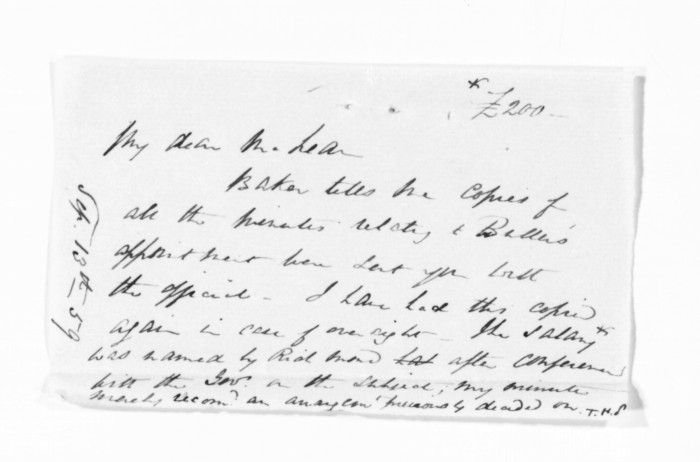 * £200 —
My dear McLean
Baker tells me copies of
all the minutes relating to Buller's
appointment were sent you with
the official — I have had this copied
again in case of oversight — The salary *
was named by Richmond after conference
with the Gov. on the subject; my minute
merely recomd. an arrangemt. previously decided on. T.H.S
Sep. 13th 59